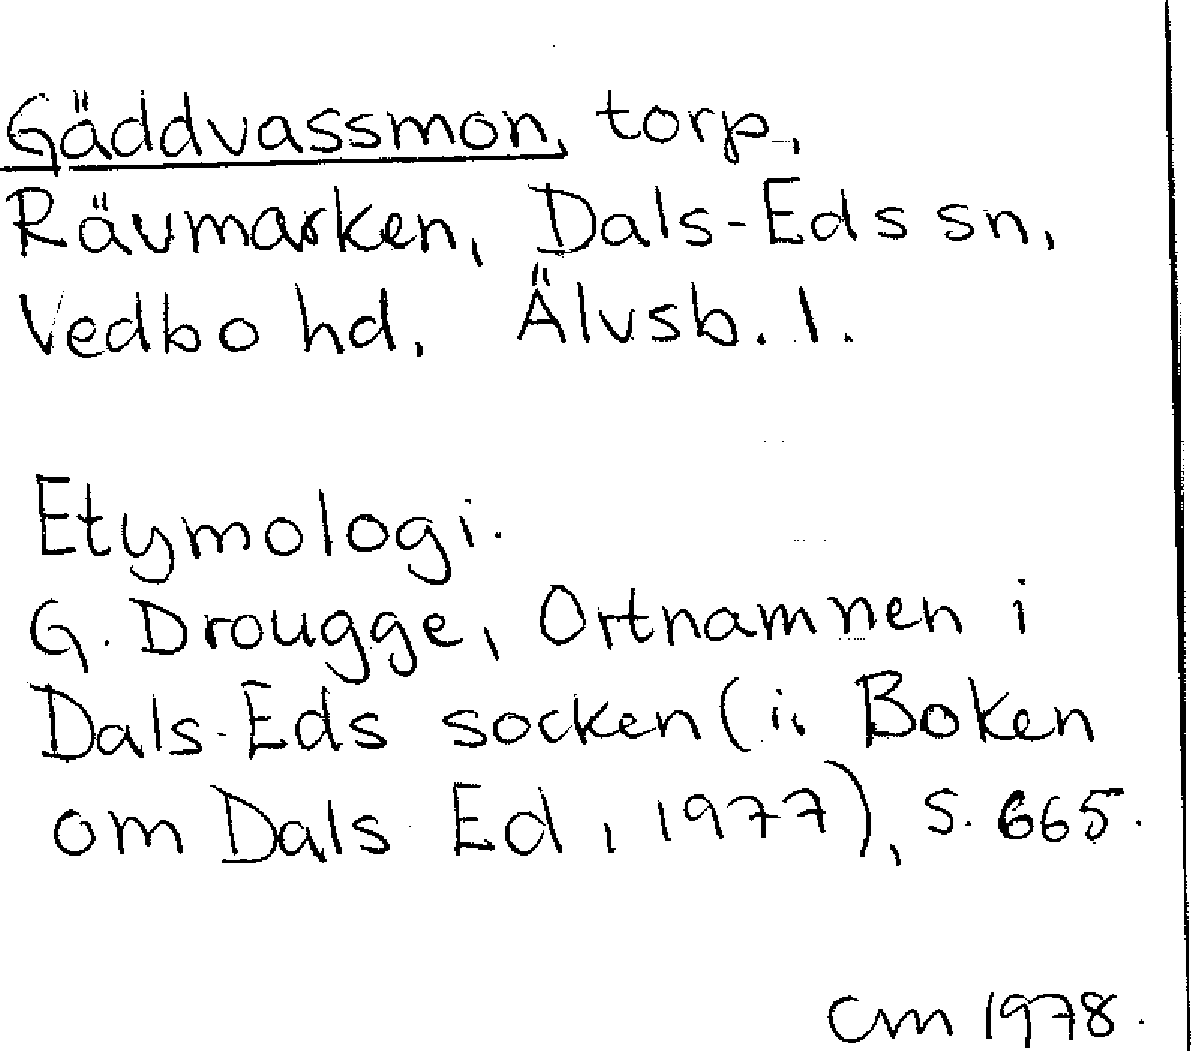 Gäddvassmon, torp,
Rävmarken, Dals-Eds sn,
Vedbo hd, Älvsb. l.
Etymologi.
G. Drougge, Ortnamnen i
Dals-Eds socken (i: Boken
om Dals Ed, 1977), s. 665.
CM 1978.